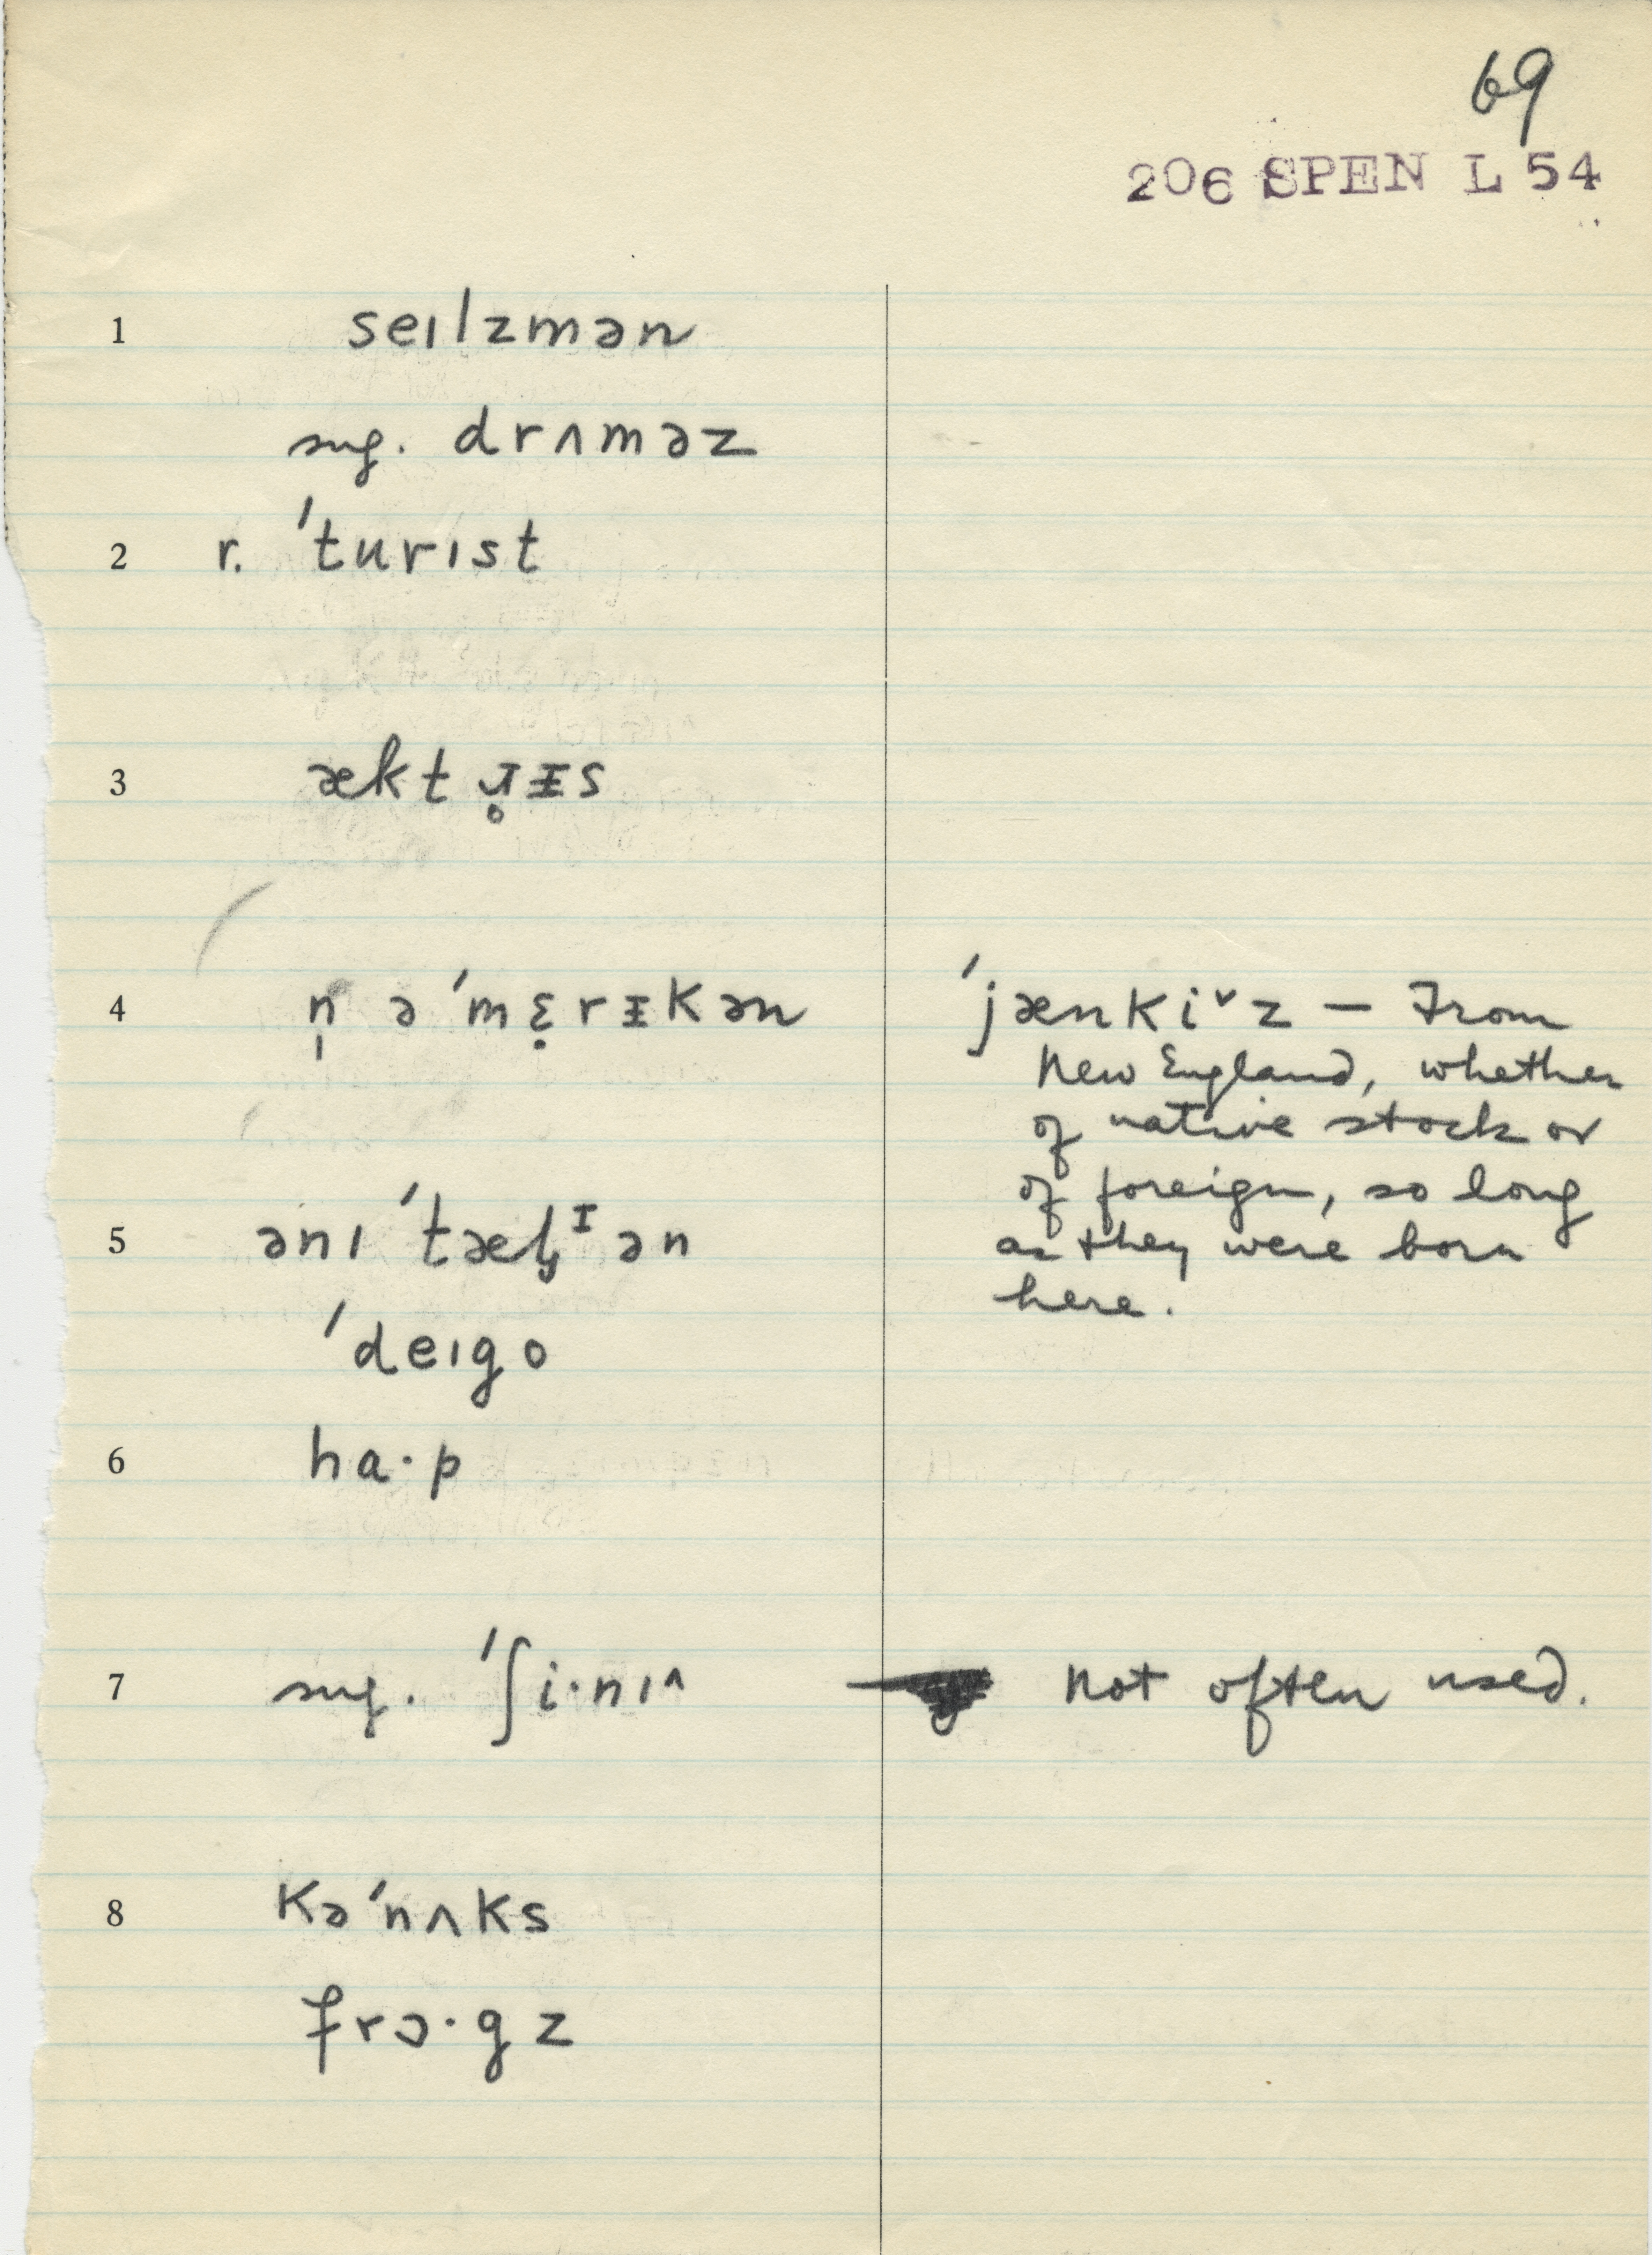 69
206 SPEN L 54
1 seɪlzmən
sug. drʌməz
2 r. ˈturɪst
3 æktɹ̥ᵻs
4 n̩ əˈmɛ̣rᵻkən
ˈjænkiˇz — From
New England, whether
of native stock or
of foreign, so long
as they were born
here.
5 ənɪˈtæl̡ᴵən
ˈdeɪgo
6 ha·p
7 sug. ˈʃi·nɪ^ Not often used.
8 kəˈnʌks
frɔ·gz